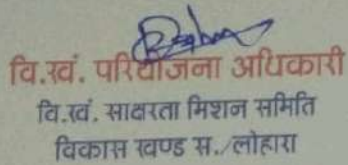 वि.खं. परियोजना अधिकारी
वि.खं. साक्षरता मिशन समिति
विकास खण्ड स./लोहारा